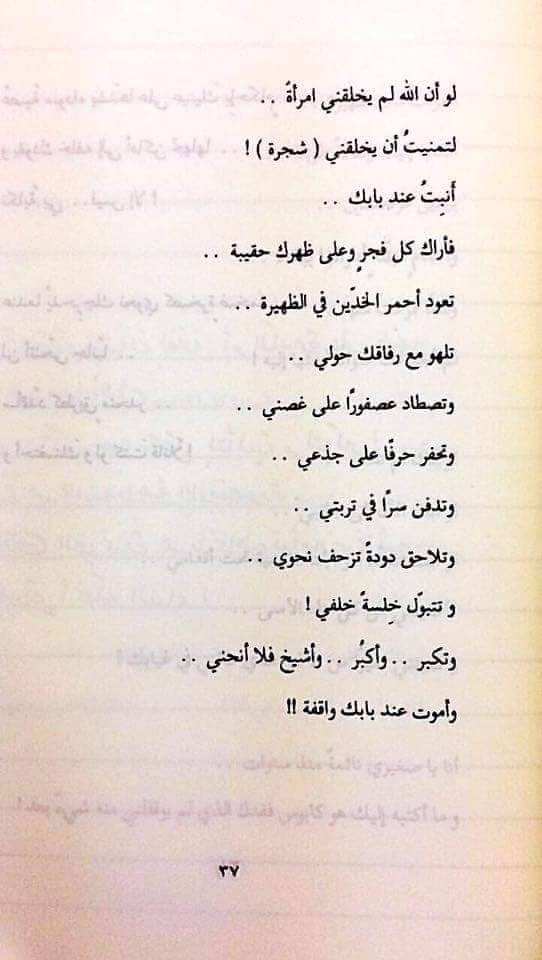 لو أن الله لم يخلقني امرأةً ..
لتمنيتُ أن يخلقني ( شجرة ) !
أَنبِتُ عند بابك ..
فأراك كل فجرٍ وعلى ظهرك حقيبة ..
تعود أحمر الخدّين في الظهيرة ..
تلهو مع رفاقك حولي ..
وتصطاد عصفورًا على غصني ..
وتحفر حرفًا على جذعي ..
وتدفن سرًا في تربتي ..
وتلاحق دودةً تزحف نحوي ..
و تتبوّل خِلسةً خلفي !
وتكبر .. وأكبُر .. وأشيخ فلا أنحني ..
وأموت عند بابك واقفة !!
٣٧